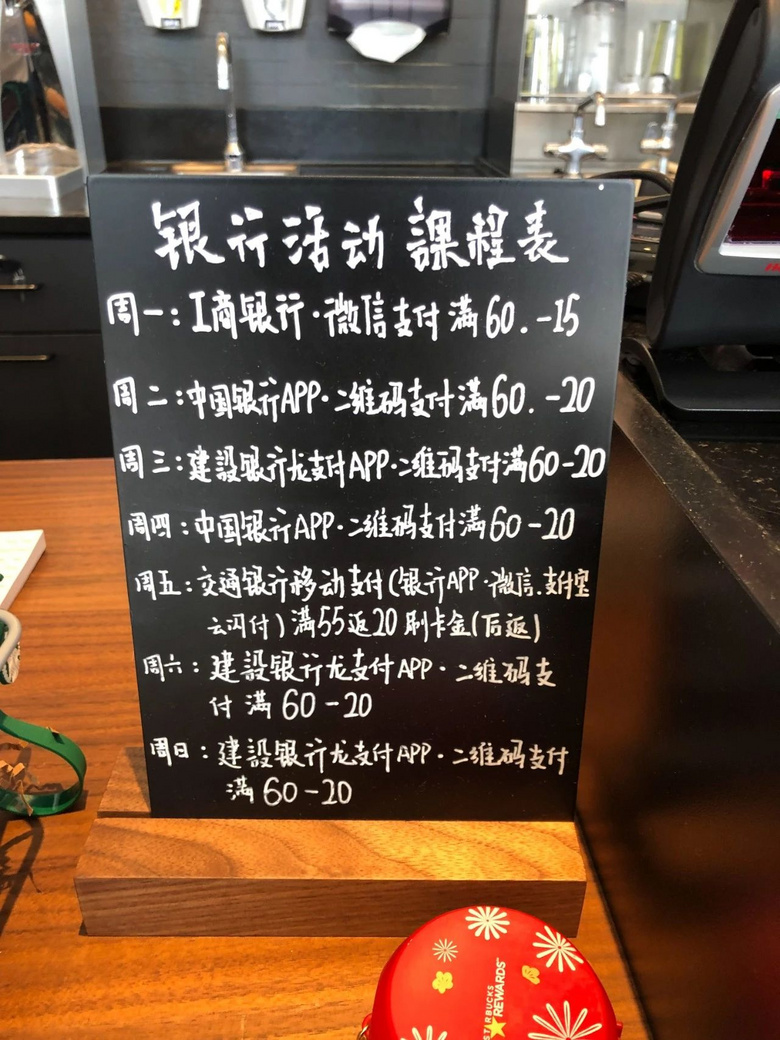 银行活动 課程表
周一:工商银行·微信支付 满60.-15
周二:中国银行APP·二维码支付满60.-20
周三:建設银行龙支付APP·二维码支付满60-20
周四:中国银行APP·二维码支付满60-20
周五:交通银行移动支付(银行APP·微信.支付宝
云闪付)满55返20刷卡金(后返)
周六:建設银行龙支付APP·二维码支
付满60-20
周日:建設银行龙支付APP·二维码支付
满60-20
STARBUCKS
REWARDS™